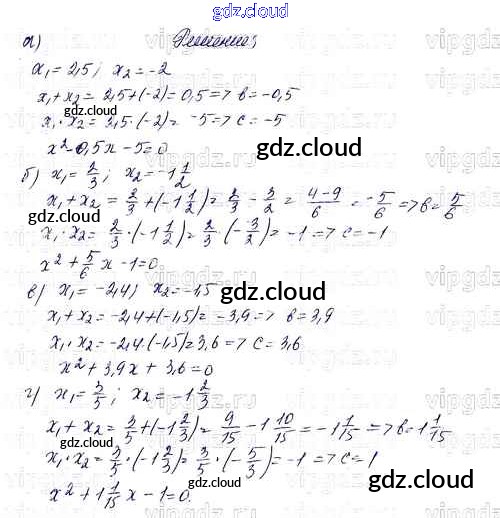 gdz.cloud
gdz.cloud
а) Решение;
x₁ = 2,5; x₂ = -2
x₁ + x₂ = 2,5 + (-2) = 0,5 => b = -0,5
x₁ · x₂ = 2,5 · (-2) = -5 => c = -5
x² - 0,5x - 5 = 0
gdz.cloud
б) x₁ = 2/3; x₂ = -1 1/2
x₁ + x₂ = 2/3 + (-1 1/2) = 2/3 - 3/2 = (4-9)/6 = -5/6 => b = 5/6
gdz.cloud
x₁ · x₂ = 2/3 · (-1 1/2) = 2/3 · (-3/2) = -1 => c = -1
x² + 5/6 x - 1 = 0
в) x₁ = -2,4; x₂ = -1,5
gdz.cloud
x₁ + x₂ = -2,4 + (-1,5) = -3,9 => b = 3,9
x₁ · x₂ = -2,4 · (-1,5) = 3,6 => c = 3,6
gdz.cloud
x² + 3,9x + 3,6 = 0
г) x₁ = 3/5; x₂ = -1 2/3
x₁ + x₂ = 3/5 + (-1 2/3) = 9/15 - 1 10/15 = -1 1/15 => b = 1 1/15
gdz.cloud
x₁ · x₂ = 3/5 · (-1 2/3) = 3/5 · (-5/3) = -1 => c = 1
gdz.cloud
x² + 1 1/15 x - 1 = 0
gdz.cloud